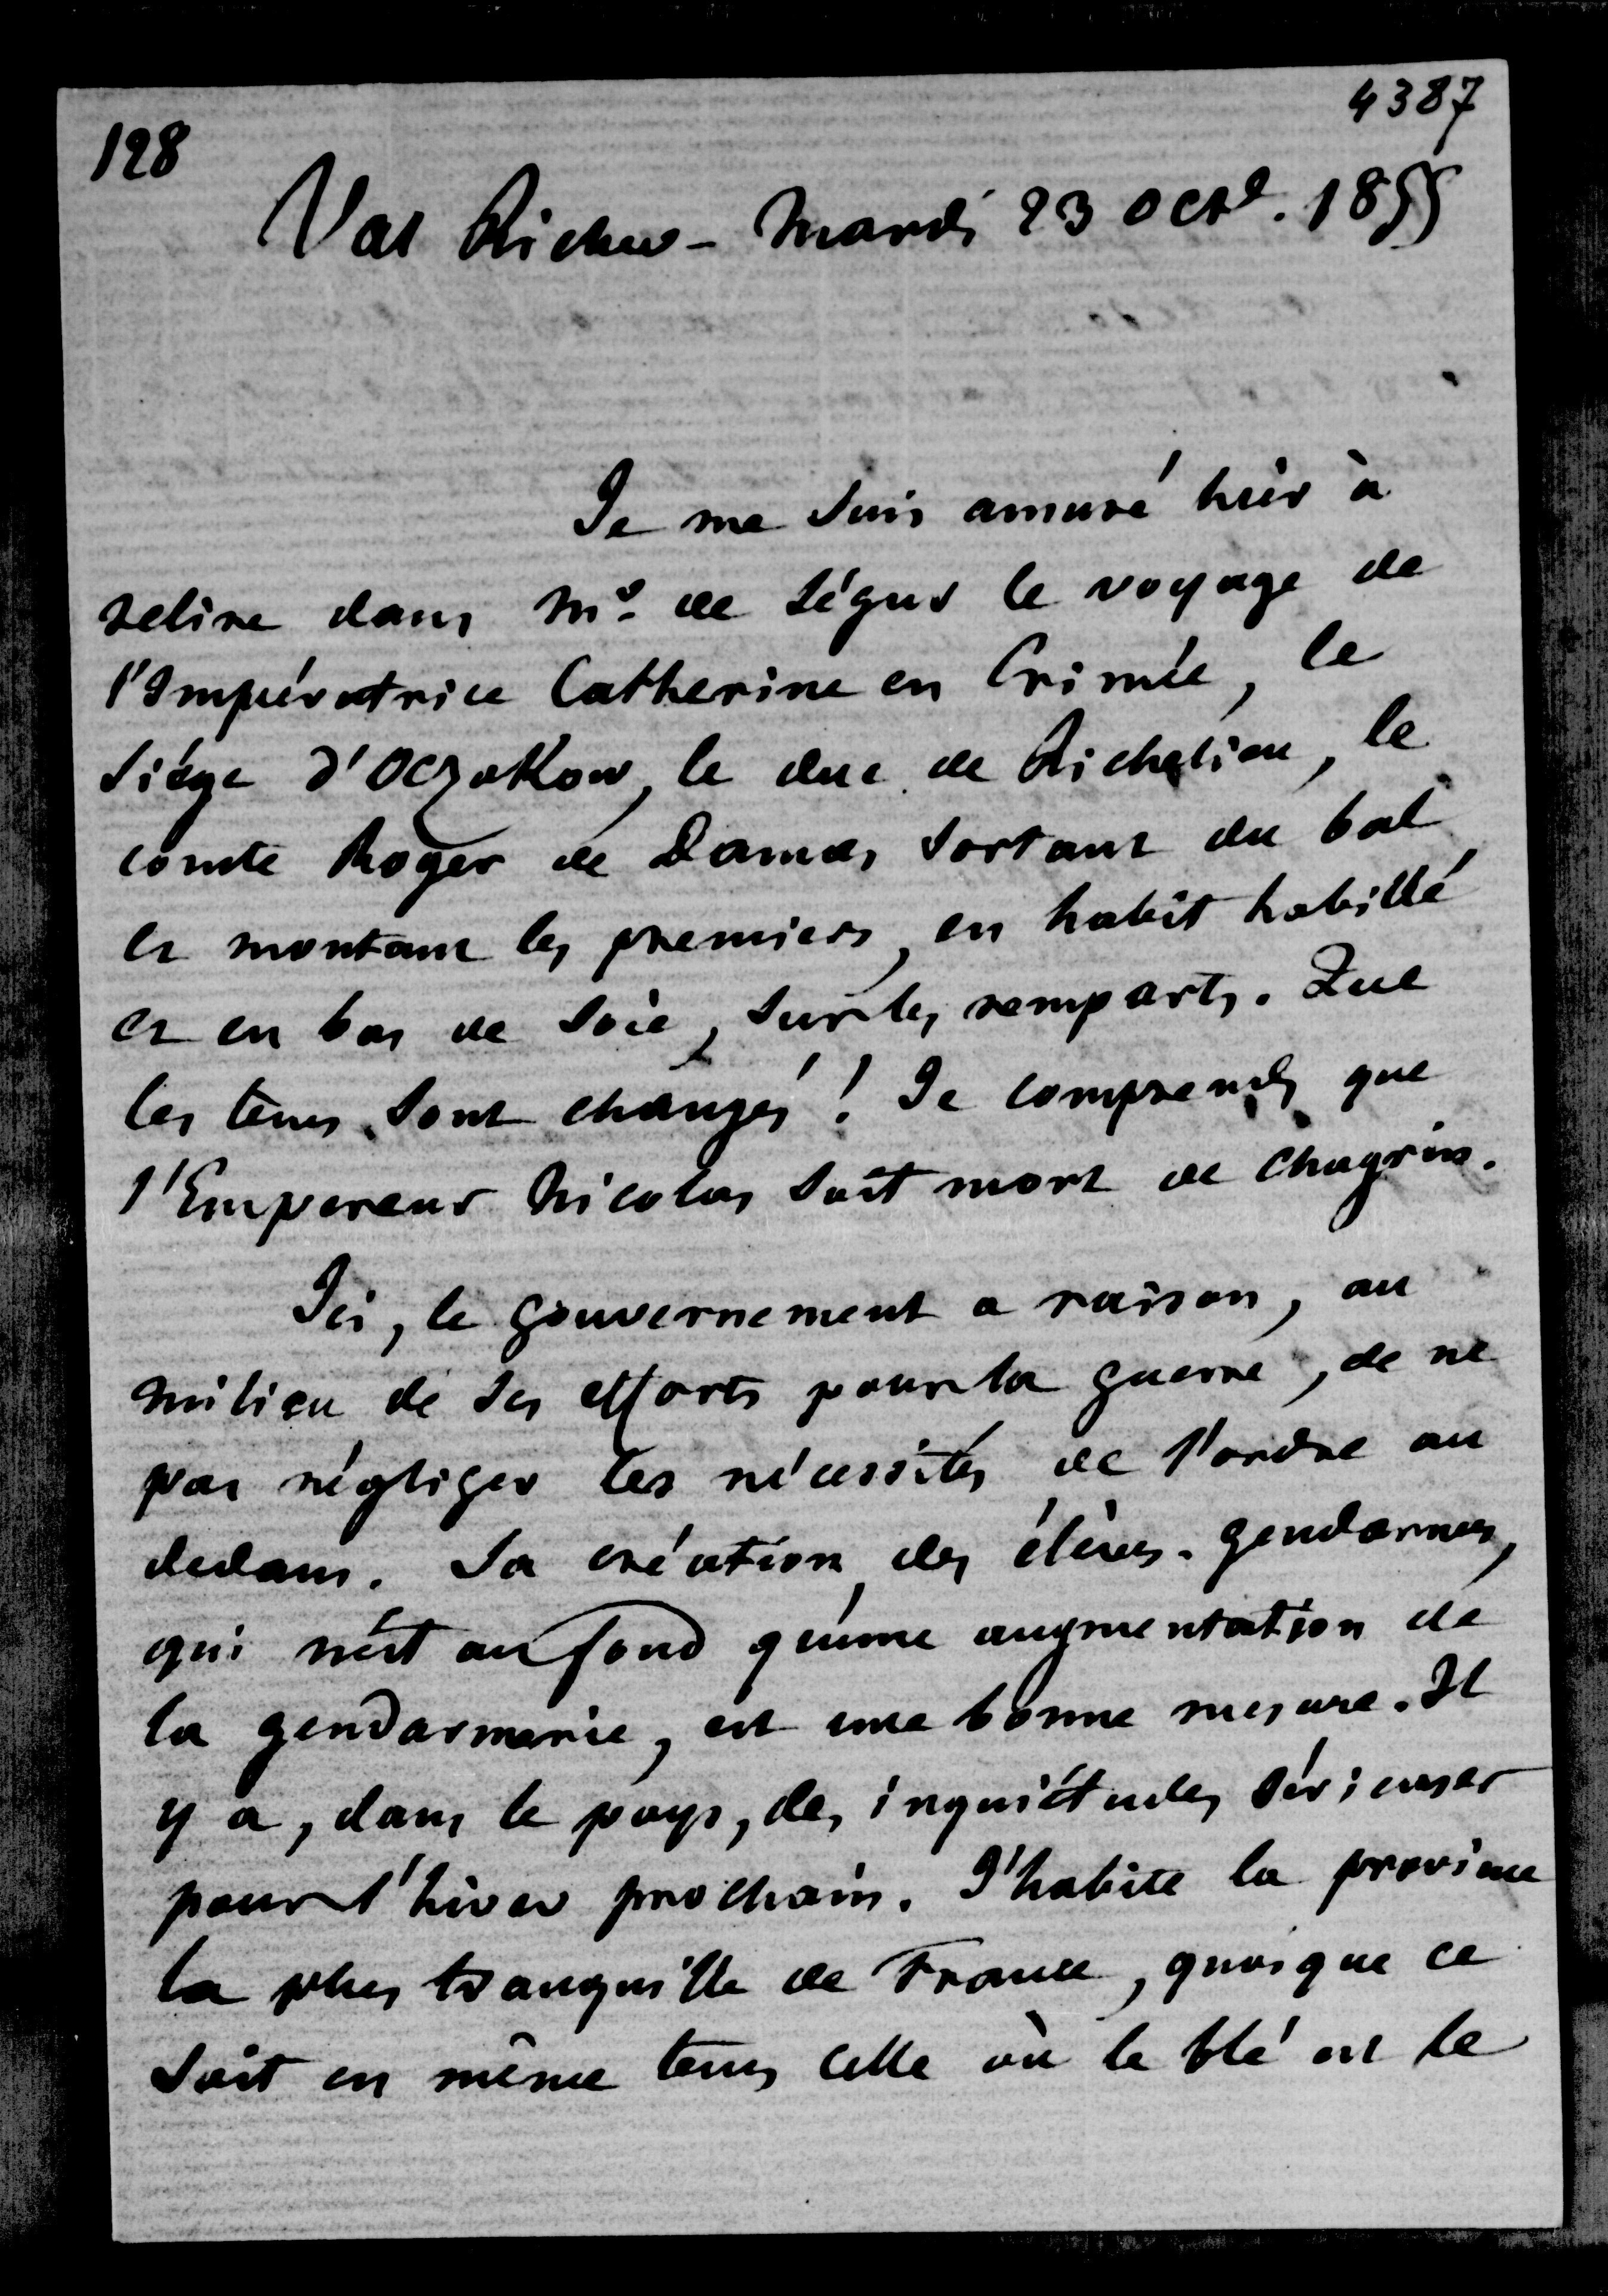 4387
128
Val Richer - Mardi 23 Octe. 1855
Je me suis amusé hier à
relire dans Mr. de Ségur le voyage de
l'Impératrice Catherine en Crimée, le
siège d'Oczakow, le duc de Richelieu, le
comte Roger de Damas sortant du bal
et montant les premiers, en habit habillé
et en bas de soie, sur les remparts. Que
les tems sont changés ! Je comprends que
l'Empereur Nicolas soit mort de chagrin.
Ici, le gouvernement a raison, au
milieu de ses efforts pour la guerre, de ne
pas négliger les nécessités de l'ordre au
dedans. Sa création des élèves-gendarmes,
qui n'est au fond qu'une augmentation de
la gendarmerie, est une bonne mesure. Il
y a, dans le pays, des inquiétudes sérieuses
pour l'hiver prochain. J'habite la province
la plus tranquille de France, quoique ce
soit en même tems celle où le blé est le